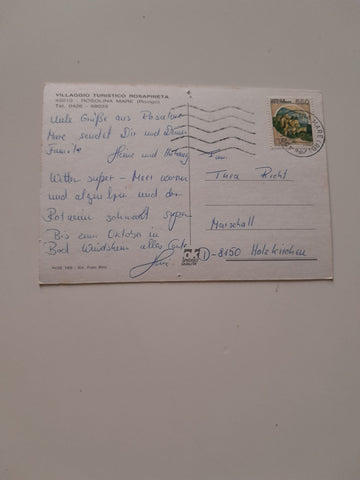 VILLAGGIO TURISTICO ROSAPINETA
45010 - ROSOLINA MARE (Rovigo)
Tel. 0426 - 68033
Viele Grüße aus Rosolina
Mare sendet Dir und Deiner
Familie
Heine und
Wetter super - Meer warm
und algenfrei und der
Rotwein schmeckt super
Bis zum Oktober in
Bad Windsheim alles Gute
ITALIA 550
MARE
Frau
Richt
Marschall
D-8150 Holzkirchen